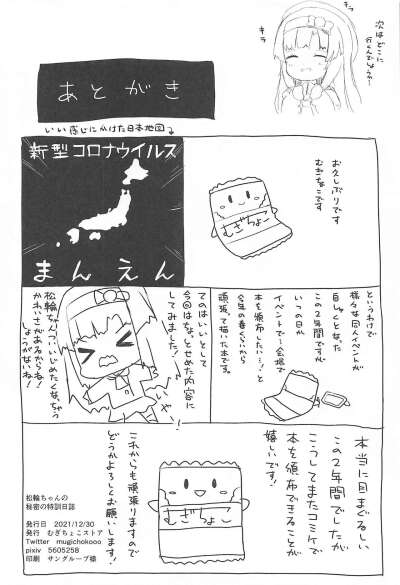 次はどこに
行くんでしょうか…
キラ
キラ
あとがき
いい感じにかけた日本地図→
新型コロナウイルス
まんえん
お久しぶりです
むぎちょこです
むぎちょこ
というわけで
様々な同人イベントが
自しゅくとなった
この2年間ですが
いつの日か
イベントで…会場で
本を頒布したい…!と
今年の春くらいから
頑張って描いた本です。
てのはいいとして
今回はちょっとせめた内容に
してみました!
いやー!
松輪ちゃんつい、いじめたくなっちゃう
かわいさがあるからね!
しょうがないね!
本当に目まぐるしい
この2年間でしたが
こうしてまたコミケで
本を頒布できることが
嬉しいです!
むぎちょこ
これからも頑張りますので
どうかよろしくお願いします!
松輪ちゃんの
秘密の特訓日誌
発行日 2021/12/30
発行 むぎちょこストア
Twitter mugichokooo
pixiv 5605258
印刷 サングループ様